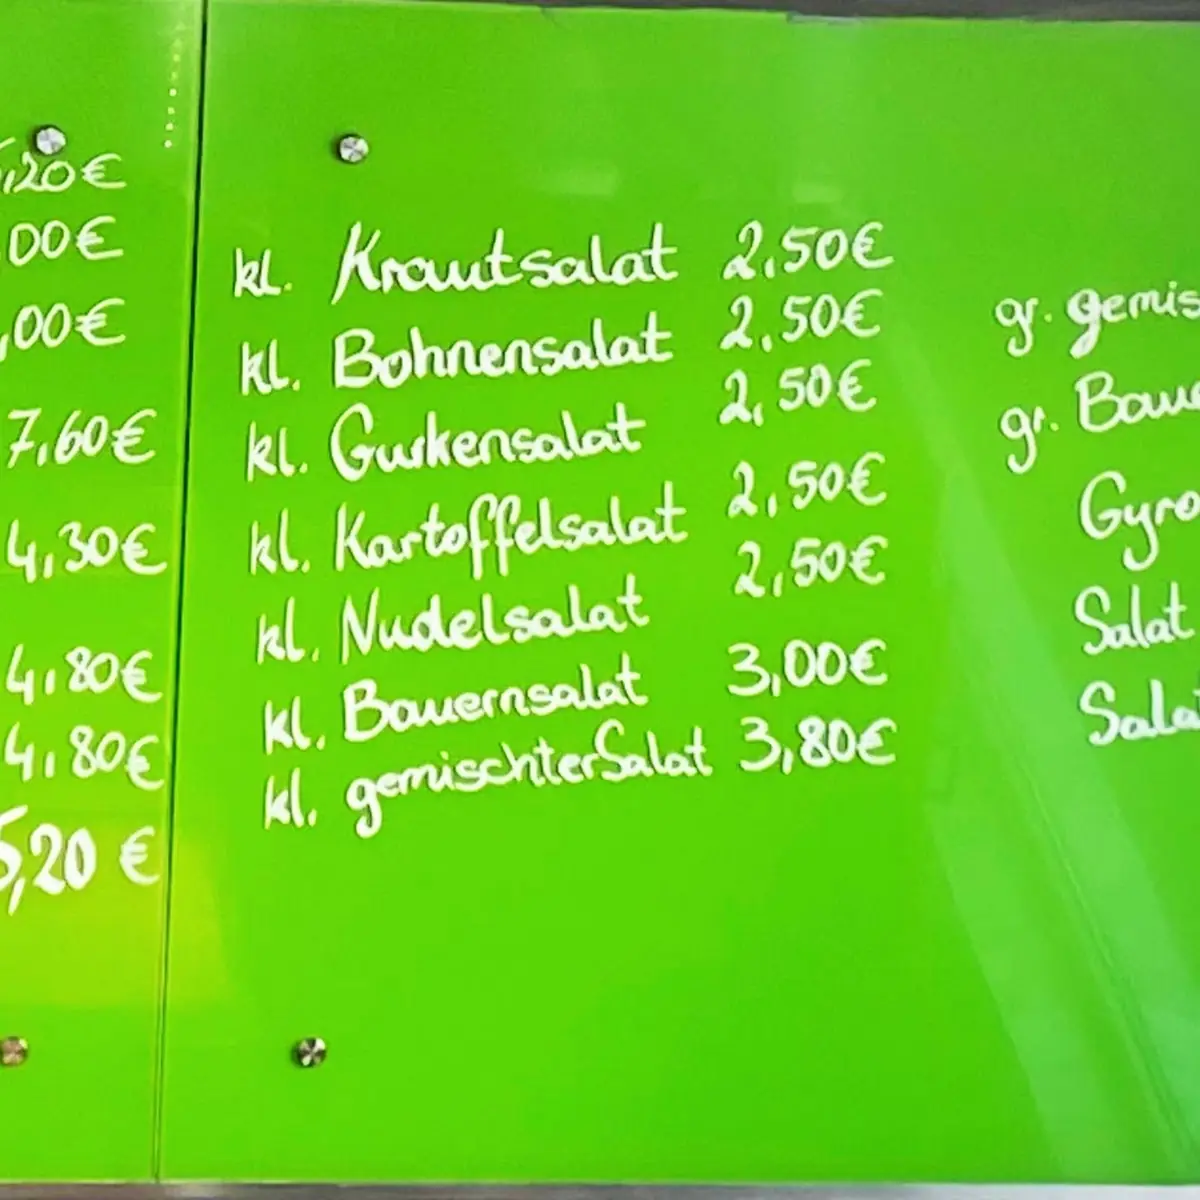 ,20€
,00€
,00€
7,60€
4,30€
4,80€
4,80€
5,20 €
kl. Krautsalat 2,50€
kl. Bohnensalat 2,50€
kl. Gurkensalat 2,50€
kl. Kartoffelsalat 2,50€
kl. Nudelsalat 2,50€
kl. Bauernsalat 3,00€
kl. gemischterSalat 3,80€
gr. gemis
gr. Baue
Gyro
Salat
Sala